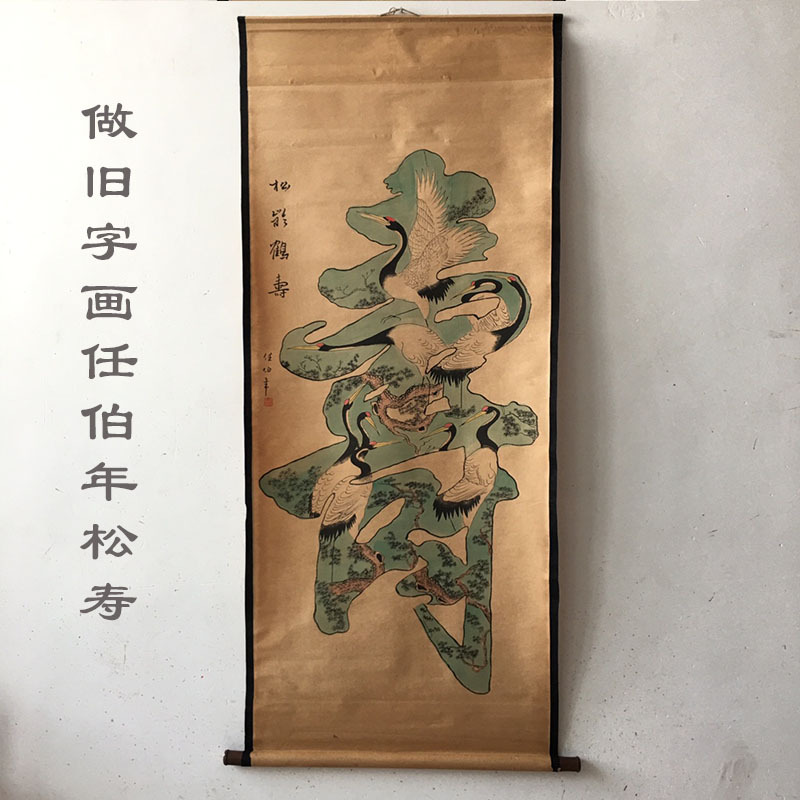 做旧字画任伯年松寿
松龄鶴壽
任伯年